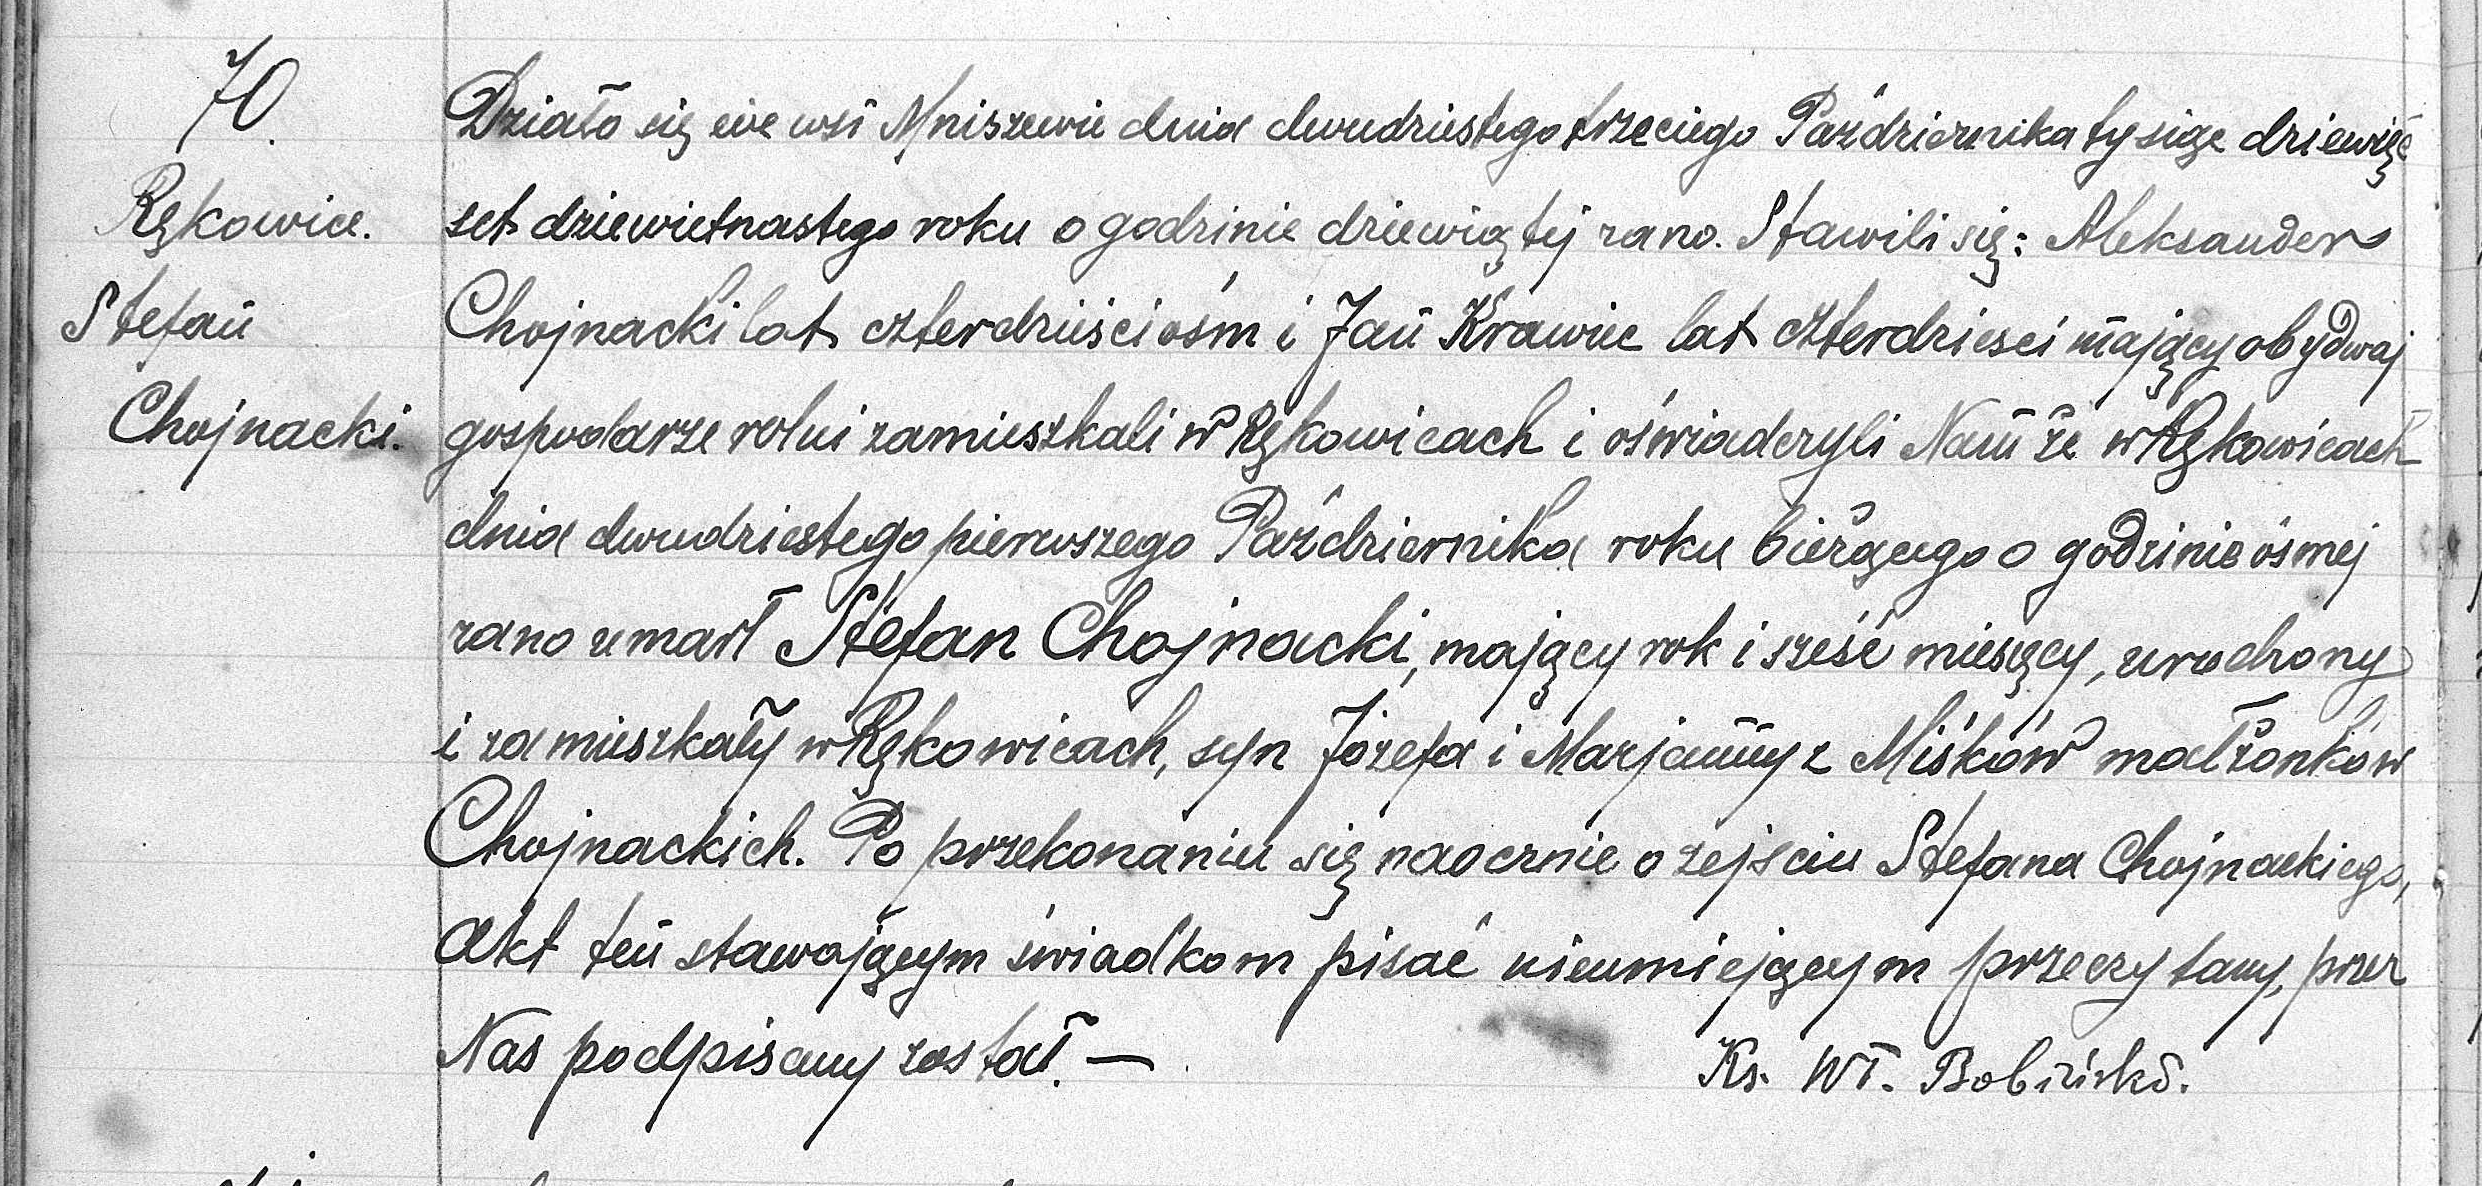 70.
Rękowice.
Stefan
Chojnacki.
Działo się we wsi Mniszewie dnia dwudziestego trzeciego Października tysiąc dziewięć
set dziewietnastego roku o godzinie dziewiątej rano. Stawili się: Aleksander
Chojnacki lat czterdzieści ośm i Jan Krawiec lat czterdziesci mający obydwaj
gospodarze rolni zamieszkali w Rękowicach i oświadczyli Nam że w Rękowicach
dnia dwudziestego pierwszego Października roku bieżącego o godzinie ósmej
rano umarł Stefan Chojnacki, mający rok i sześć miesięcy, urodzony
i zamieszkały w Rękowicach, syn Józefa i Marjanny z Miśków małżonków
Chojnackich. Po przekonaniu się naocznie o zejściu Stefana Chojnackiego,
Akt ten stawającym świadkom pisać nieumiejącym przeczytany, przez
Nas podpisany został. —
Ks. Wł. Bobiński.